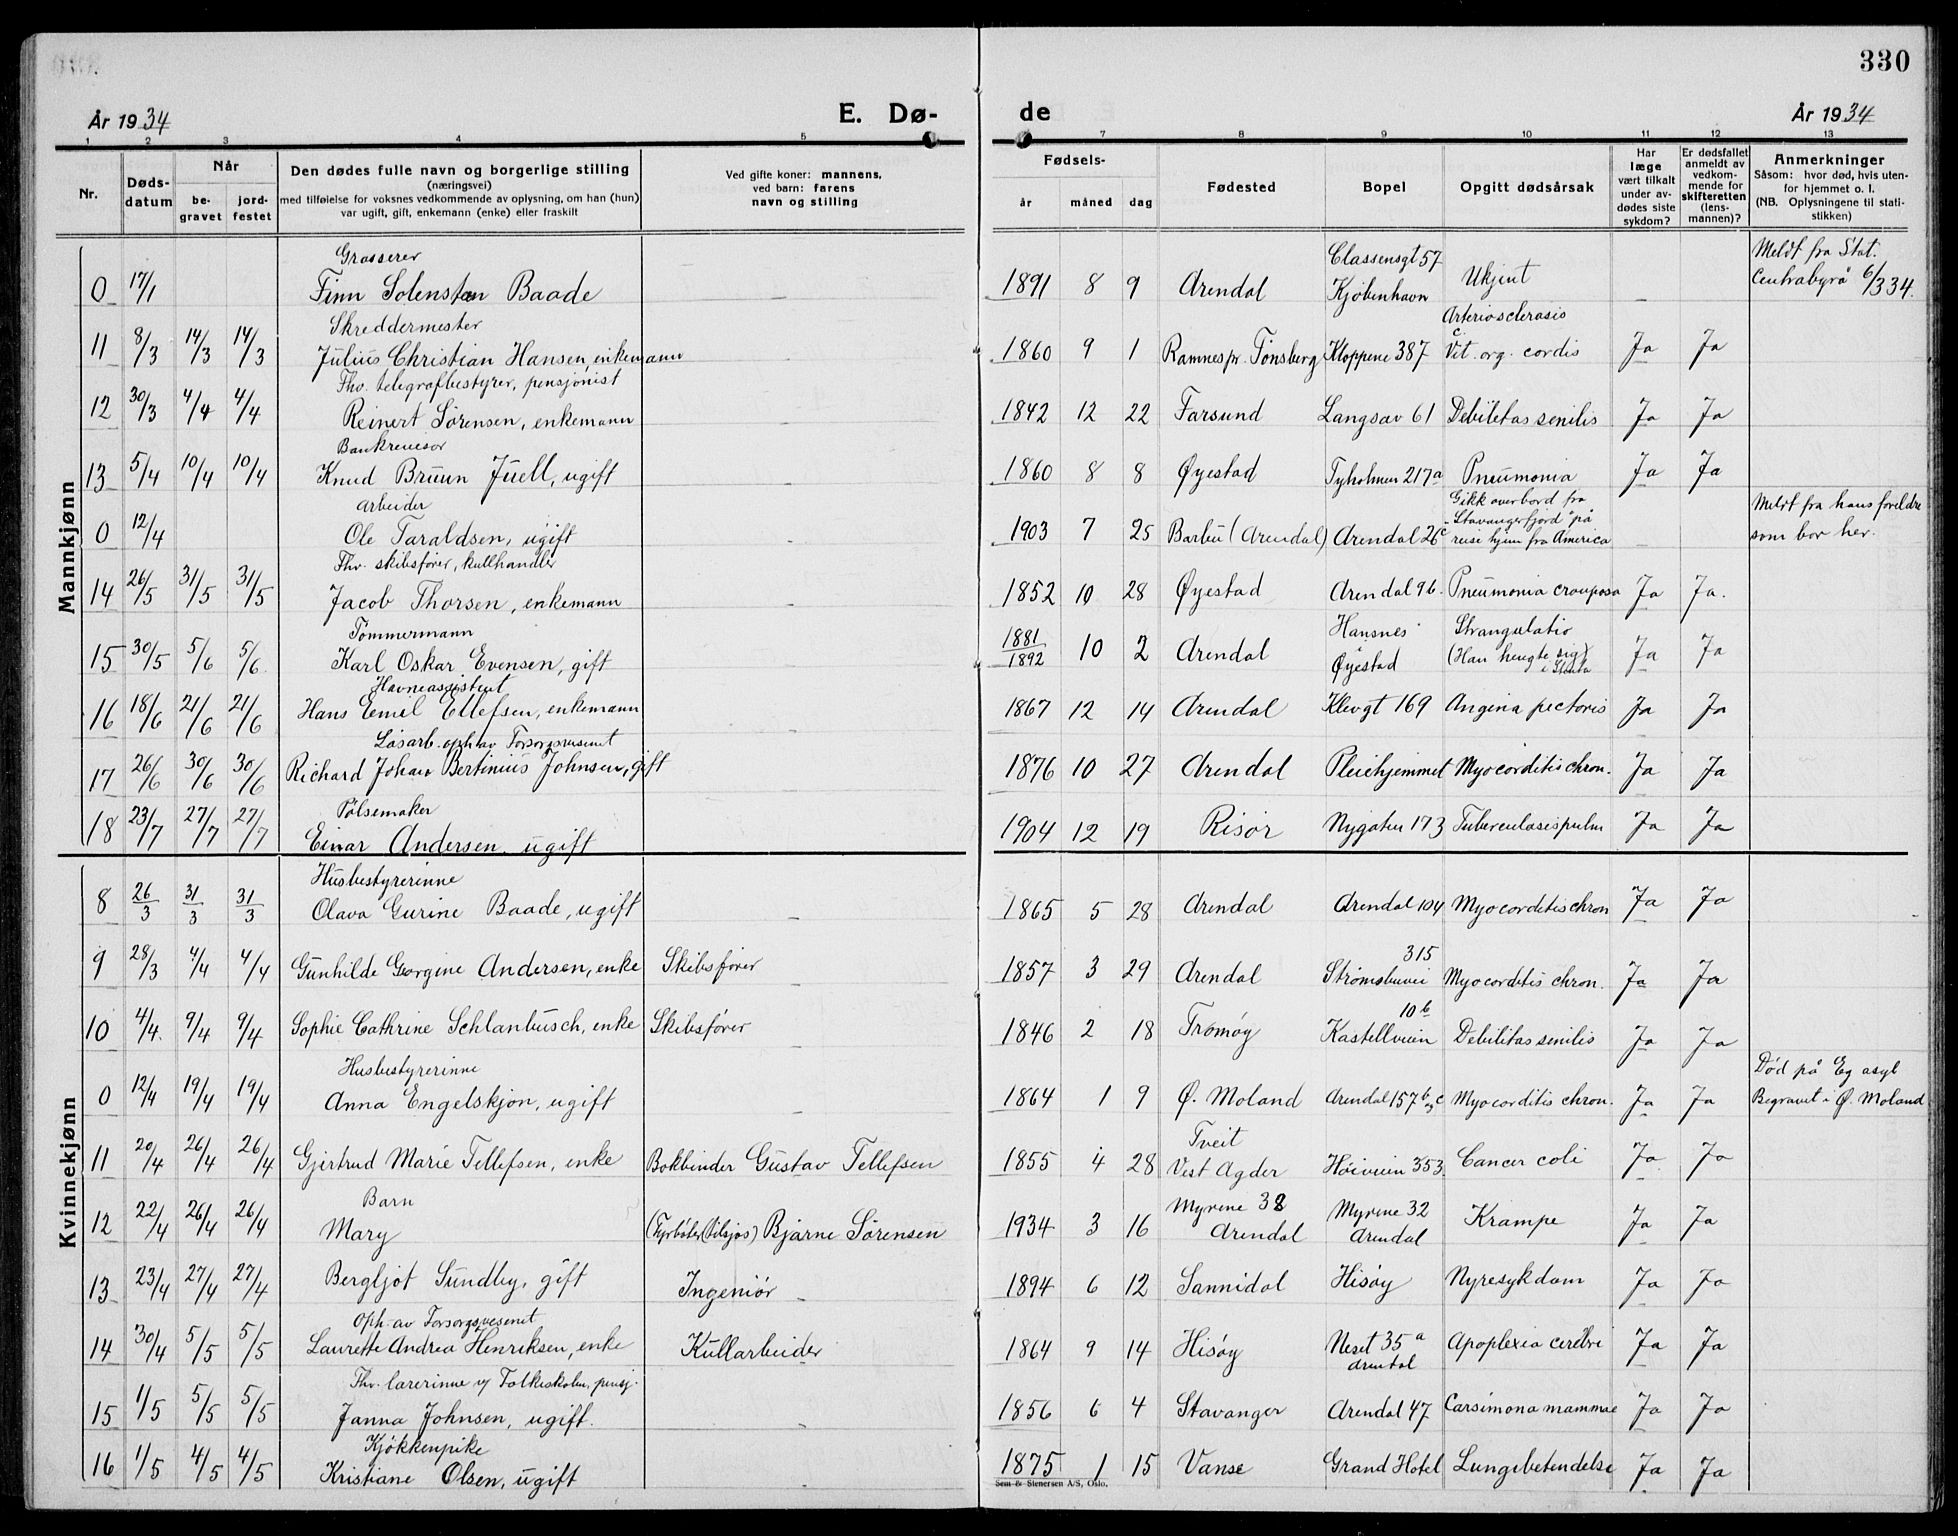 330
År 1934 E. Dø- de År 1934
1 2 3 4 5 7 8 9 10 11 12 13
Nr. Døds-datum Når be-gravet jord-festet Den dødes fulle navn og borgerlige stilling (næringsvei) med tilføielse for voksnes vedkommende av oplysning, om han (hun) var ugift, gift, enkemann (enke) eller fraskilt Ved gifte koner: mannens, ved barn: farens navn og stilling Fødsels- år måned dag Fødested Bopel Opgitt dødsårsak Har læge vært tilkalt under av-dødes siste sykdom? Er dødsfallet anmeldt av vedkom-mende for skifteretten (lens-mannen)? Anmerkninger Såsom: hvor død, hvis uten-for hjemmet o. l. (NB. Oplysningene til stati-stikken)
Mannkjønn
0 17/1 Grosserer Finn Solensten Baade - 1891 8 9 Arendal Classensgt 57 Kjøbenhavn Ukjent - Meldt fra Stat. Centralbyrå 6/3 34.
11 8/3 14/3 14/3 Skreddermester Julius Christian Hansen, enkemann - 1860 9 1 Ramnes pr. Tønsberg Kloppene 387 Arteriosclerosis c. Vit. org. cordis Ja Ja
12 30/3 4/4 4/4 Fhv. telegrafbestyrer, pensjonist Reinert Sørensen, enkemann - 1842 12 22 Farsund Langsæv 61 Debilitas senilis Ja Ja
13 5/4 10/4 10/4 Bankrevisor Knud Bruun Juell, ugift - 1860 8 8 Øyestad Tyholmen 217a Pneumonia Ja Ja
0 12/4 Arbeider Ole Taraldsen, ugift - 1903 7 25 Barbu (Arendal) Arendal 26c Gikk overbord fra "Stavangerfjord" på reise hjem fra America - Meldt fra hans foreldre som bor her.
14 26/5 31/5 31/5 Fhv. skibsfører, kullhandler Jacob Thorsen, enkemann - 1852 10 28 Øyestad Arendal 96. Pneumonia crouposa Ja Ja.
15 30/5 5/6 5/6. Tømmermann Karl Oskar Evensen, gift - 1881/1892 10 2 Arendal Hansnes i Øyestad Strangulatio (Han hengte sig) Ja Ja
16 18/6 21/6 21/6 Havneassistent Hans Emil Ellefsen, enkemann - 1867 12 14 Arendal Klevgt 169 Angina pectoris Ja Ja
17 26/6 30/6 30/6 Løsarb. oph. av Forsorgsvesenet Richard Johan Bertinius Johnsen, gift - 1876 10 27 Arendal Pleiehjemmet Myocorditis chron. Ja Ja
18 23/7 27/7 27/7 Pølsemaker Einar Andersen, ugift - 1904 12 19 Risør Nygaten 173 Tuberculosis pulm Ja Ja
Kvinnekjønn
8 26/3 31/3 31/3 Husbestyrerinne Olava Gurine Baade, ugift - 1865 5 28 Arendal Arendal 104 Myocorditis chron Ja Ja
9 28/3 4/4 4/4 Gunhilde Georgine Andersen, enke Skibsfører - 1857 3 29 Arendal 315 Strømsbuvei Myocorditis chron. Ja Ja
10 4/4. 9/4 9/4 Sophie Cathrine Schlanbusch, enke Skibsfører - 1846 2 18 Tromøy 10b Kastellveien Debilitas senilis Ja Ja
0 12/4 19/4 19/4 Husbestyrerinne Anna Engelskjøn, ugift - 1864 1 9 Ø. Moland Arendal 157b og c Myocorditis chron. Ja Ja Død på Eg asyl Begravet i Ø. Moland
11 20/4 26/4 26/4 Gjertrud Marie Tellefsen, enke Bokbinder Gustav Tellefsen 1855 4 28 Tveit Vest Agder Høiveien 353. Cancer coli Ja Ja
12 22/4 26/4 26/4 Barn Mary (Fyrbøter (tilsjøs) Bjarne Sørensen 1934 3 16 Myrene 32 Arendal Myrene 32 Arendal Krampe Ja Ja
13 23/4 27/4 27/4 Bergljot Sundby, gift Ingeniør - 1894 6 12 Sannidal Hisøy Nyresykdom Ja Ja
14 30/4 5/5 5/5 Oph. av Forsorgsvesenet Laurette Andrea Henriksen, enke Kullarbeider 1864 9 14 Hisøy Neset 35a Arendal Apoplexia cerebri Ja Ja
15 1/5 5/5 5/5 Fhv. lærerinne v/ Folkeskolen, pensj. Janna Johnsen, ugift. - 1856 6 4 Stavanger Arendal 47 Carsimona mammae Ja Ja
16 1/5 4/5 4/5 Kjøkkenpike Kristiane Olsen, ugift - 1875 1 15 Vanse Grand Hotel Lungebetendelse Ja Ja
Sem & Stenersen A/S, Oslo.